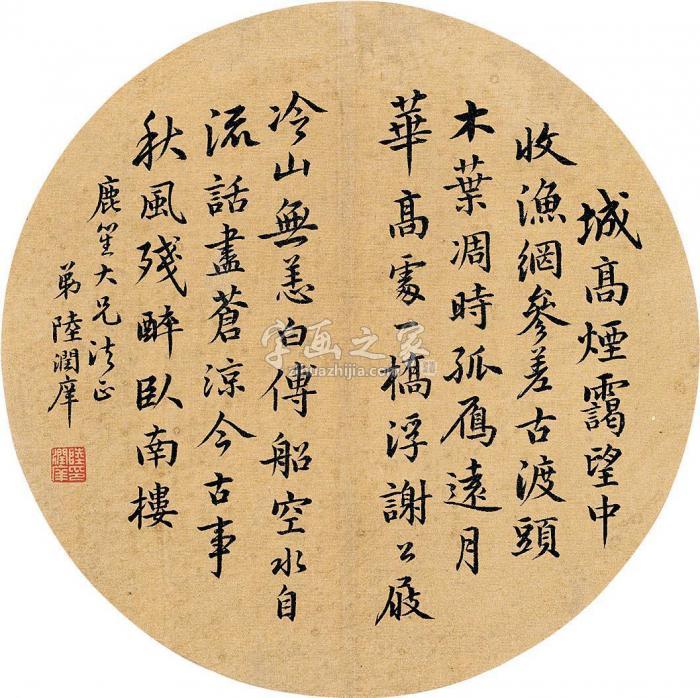 城高煙靄望中
收漁網參差古渡頭
木葉凋時孤鴈遠月
華高處一橋浮謝公屐
冷山無恙白傅船空水自
流話盡蒼涼今古事
秋風殘醉臥南樓
鹿笙大兄法正
弟陸潤庠
陸印潤庠
字画之家
zihuazhijia.com